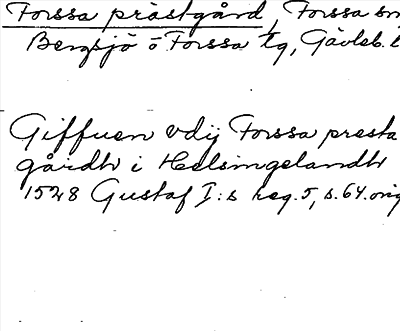 Forssa prästgård, Forssa sn
Bergsjö o Forssa tg, Gävleb. l
Giffuen vdij Forssa presta
gårdh i Helsingelandh
1528 Gustaf I:s reg. 5, s. 64. orig